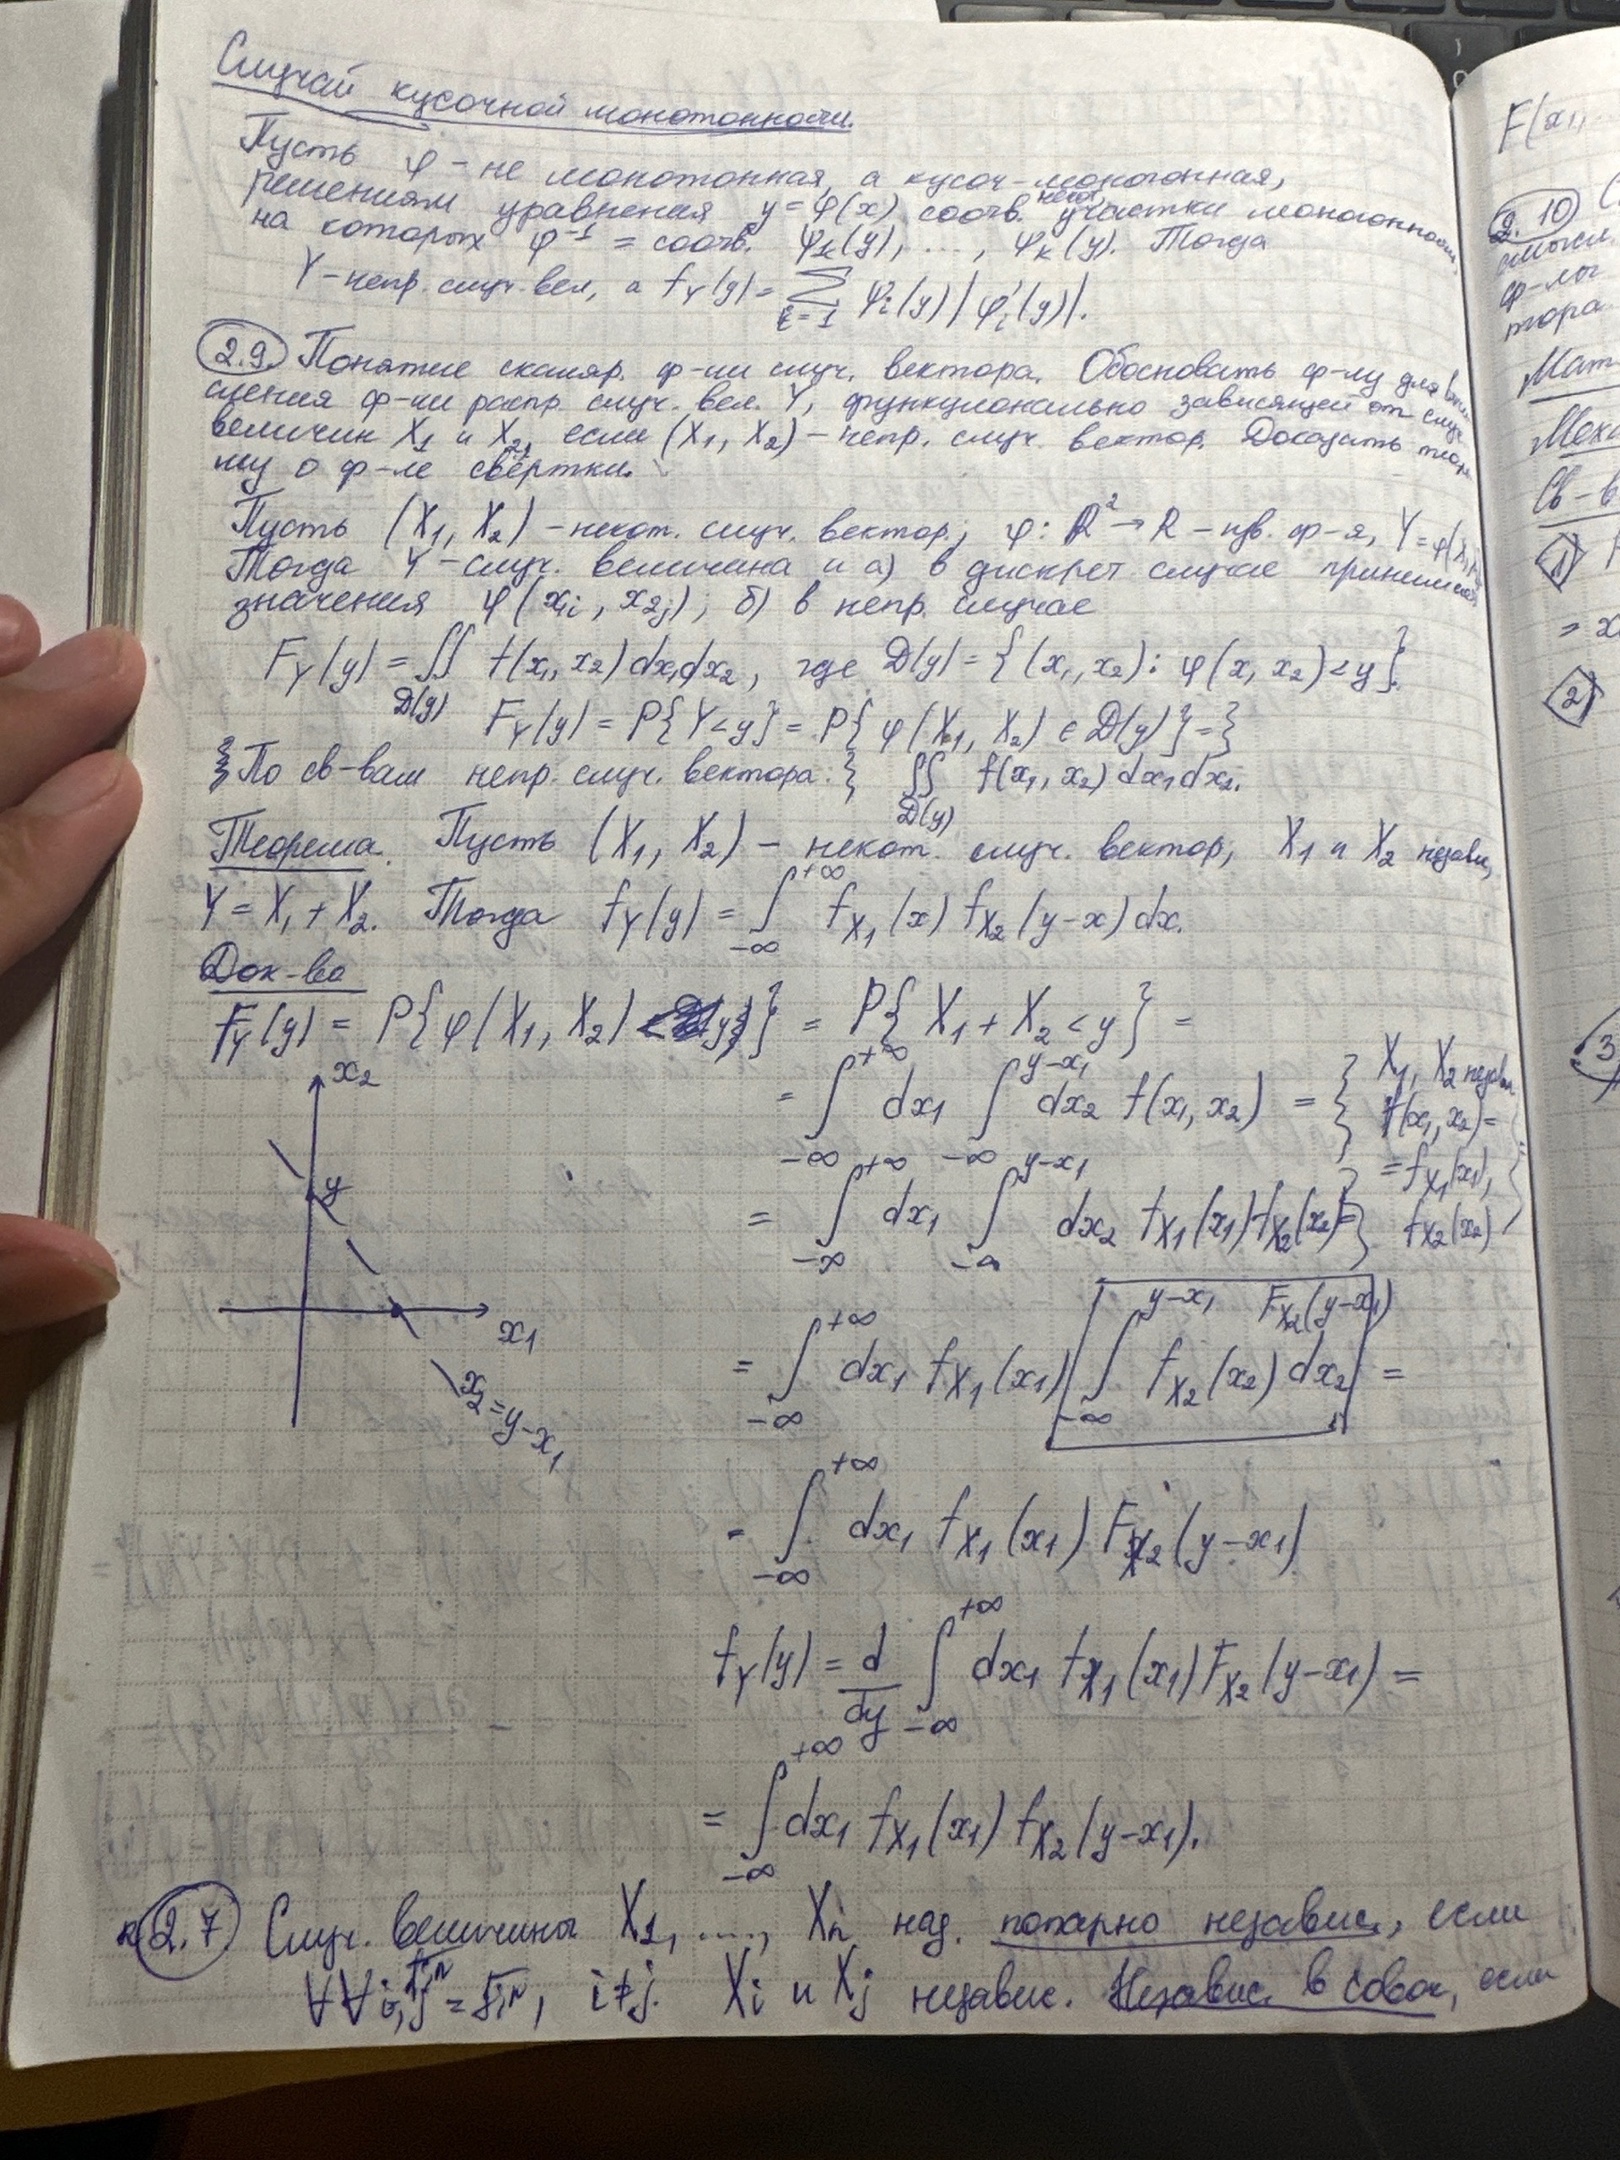 Случай кусочной монотонности.
Пусть φ – не монотонная, а кусоч-монотонная,
решениям уравнения y = φ(x) соотв. некот. участки монотонности,
на которых φ⁻¹ = соотв. ψ₁(y), ..., ψₖ(y). Тогда
Y – непр. случ. вел, а f_Y(y) = Σ_{i=1} ψᵢ(y) |φ'ᵢ(y)|.
2.9. Понятие скаляр. ф-ии случ. вектора. Обосновать ф-лу для вычи
сления ф-ии распр. случ. вел. Y, функционально зависящей от случ.
величин X₁ и X₂, если (X₁, X₂) – непр. случ. вектор. Доказать теоре
му о ф-ле свёртки.
Пусть (X₁, X₂) – некот. случ. вектор; φ: R² → R – нв. ф-я, Y = φ(X₁, X₂)
Тогда Y – случ. величина и а) в дискрет. случае принимает
значения φ(x₁ᵢ, x₂ⱼ); б) в непр. случае
F_Y(y) = ∬_{D(y)} f(x₁, x₂) dx₁dx₂, где D(y) = {(x₁, x₂): φ(x₁ x₂) < y}.
F_Y(y) = P{Y < y} = P{φ(X₁, X₂) ∈ D(y)} = }
{ По св-вам непр. случ. вектора: } ∬_{D(y)} f(x₁, x₂) dx₁ dx₂.
Теорема. Пусть (X₁, X₂) – некот. случ. вектор, X₁ и X₂ незави,
Y = X₁ + X₂. Тогда f_Y(y) = ∫_{-∞}^{+∞} f_{X₁}(x) f_{X₂}(y-x) dx.
Док-во
F_Y(y) = P{φ(X₁, X₂) < y} = P{X₁ + X₂ < y} =
x₂
y
x₁
x₂ = y - x₁
= ∫_{-∞}^{+∞} dx₁ ∫_{-∞}^{y-x₁} dx₂ f(x₁, x₂) = { X₁, X₂ незав.
f(x₁, x₂) =
= f_{X₁}(x₁),
f_{X₂}(x₂) } =
= ∫_{-∞}^{+∞} dx₁ ∫_{-∞}^{y-x₁} dx₂ f_{X₁}(x₁) f_{X₂}(x₂) =
= ∫_{-∞}^{+∞} dx₁ f_{X₁}(x₁) ∫_{-∞}^{y-x₁} f_{X₂}(x₂) dx₂ = F_{X₂}(y-x₁)
= ∫_{-∞}^{+∞} dx₁ f_{X₁}(x₁) F_{X₂}(y-x₁)
f_Y(y) = d/dy ∫_{-∞}^{+∞} dx₁ f_{X₁}(x₁) F_{X₂}(y-x₁) =
= ∫_{-∞}^{+∞} dx₁ f_{X₁}(x₁) f_{X₂}(y-x₁).
2.7. Случ. величины X₁, ..., Xₙ наз. попарно независ., если
∀∀ i,j = 1,n, i≠j. Xᵢ и Xⱼ независ. Независ. в совок, если
F(x₁,
2.10
ф-лы
тора.
Мат
Св-в
1)
= x
2)
3